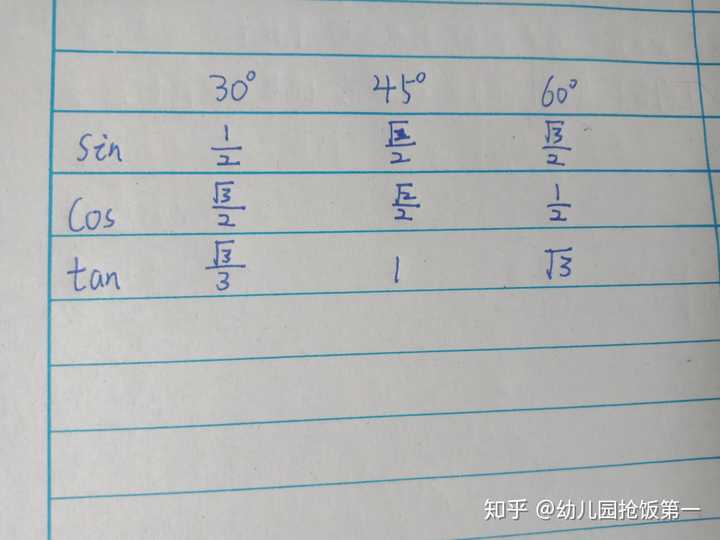 30° 45° 60°
sin 1/2 √2/2 √3/2
cos √3/2 √2/2 1/2
tan √3/3 1 √3
知乎 @幼儿园抢饭第一